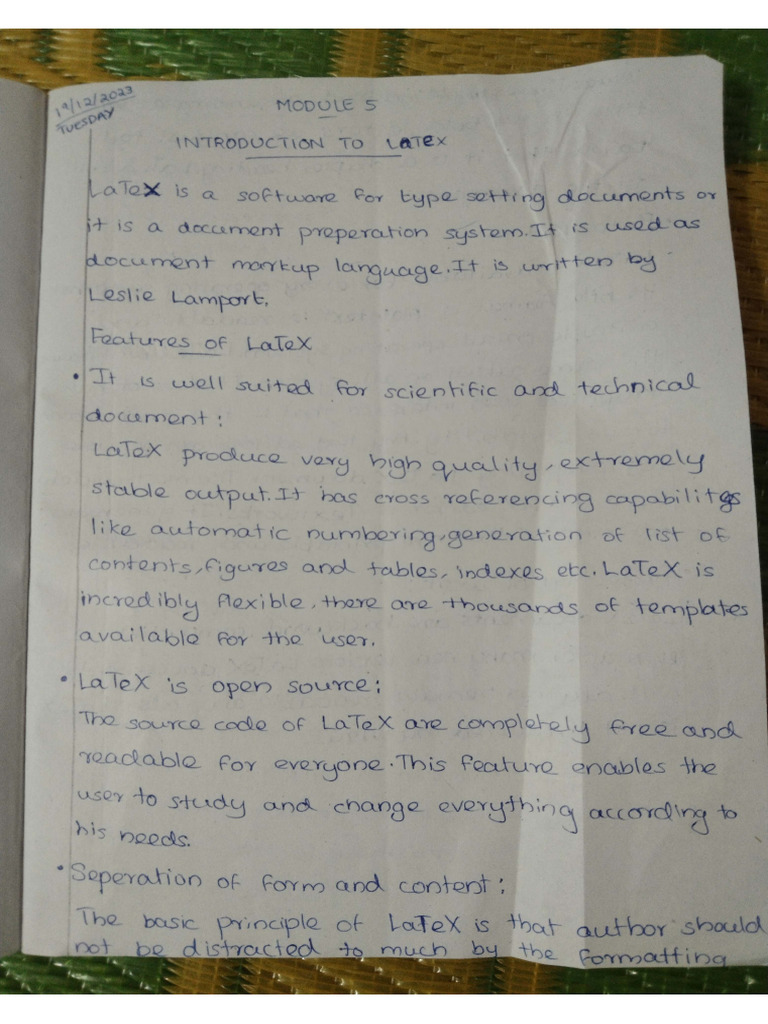 19/12/2023
TUESDAY
MODULE 5
INTRODUCTION TO LATEX
LaTeX is a software for type setting documents or
it is a document preperation system. It is used as
document markup language. It is written by
Leslie Lamport.
Features of LaTeX
• It is well suited for scientific and technical
document:
LaTeX produce very high quality, extremely
stable output. It has cross referencing capabilities
like automatic numbering, generation of list of
contents, figures and tables, indexes etc. LaTeX is
incredibly flexible, there are thousands of templates
available for the user.
• LaTeX is open source:
The source code of LaTeX are completely free and
readable for everyone. This feature enables the
user to study and change everything according to
his needs.
• Seperation of form and content:
The basic principle of LaTeX is that author should
not be distracted to much by the formatting